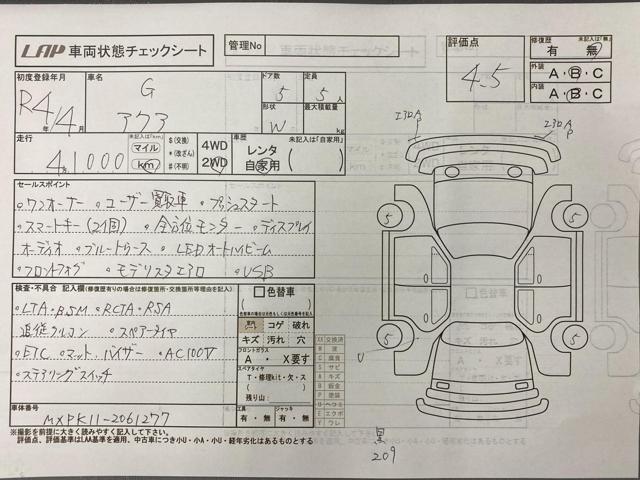 LAP 車両状態チェックシート
管理No
評価点
4.5
修復歴 未記入は「無」
有 無
外装 A・B・C
内装 A・B・C
初度登録年月
R4年/4月
車名
G
アクア
ドア数
5
定員
5名
形状
W
最大積載量
kg
走行
未記入は「km」
41000
マイル
km
$ (交換)
* (改ざん)
# (不明)
4WD
2WD
車歴 未記入は「自家用」
レンタ
自家用
セールスポイント
○ワンオーナー ○ユーザー買取車 ○プッシュスタート
○スマートキー(2個) ○全方位モニター ○ディスプレイ
オーディオ ○ブルートゥース ○LEDオートハイビーム
○フロントフォグ ○モデリスタエアロ ○USB
検査・不具合 記入欄(修復歴有りの場合は修復箇所・交換箇所等理由を記入)
○LTA・BSM・RCTA・RSA
追従クルコン ○スペアータイヤ
○ETC ○マット、バイザー ○AC100V
○ステアリングスイッチ
色替車
( )
コゲ 破れ
キズ 汚れ 穴
フロントガラス
A ・ X要す
スペアタイヤ
T・修理kit・欠・ス
残り山:
工具
有・無
ジャッキ
有・無
XX 交換済
W 波
C 腐食
S サビ
A キズ
B 鈑金
P 塗装
U ヘコミ
E エクボ
Y ワレ
車体番号
MXPK11-2061277
※撮影を前提に大きく読みやすく記入して下さい。
評価点、評価基準はLAA基準を適用、中古車につき小U・小A・小U・経年劣化はあるものとする
5
5
5
5
U
黒
209